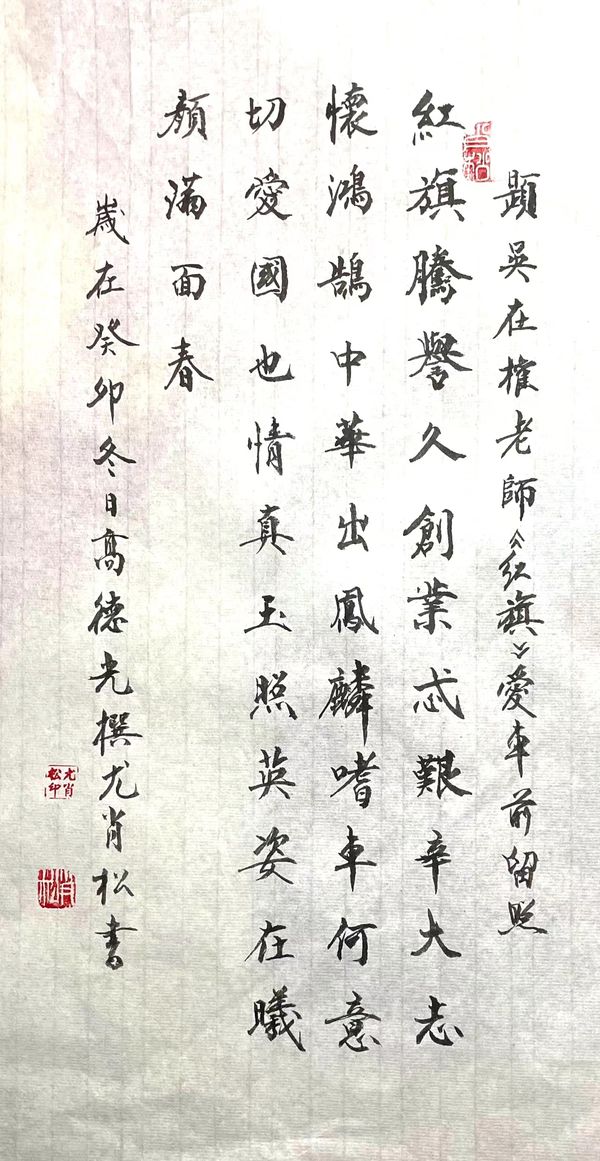 題吳在權老師《紅旗》愛車前留照
紅旗騰譽久創業忒艱辛大志
懷鴻鵠中華出鳳麟嗜車何意
切愛國也情真玉照英姿在曦
顏滿面春
歲在癸卯冬日高德光撰尤肖松書
尤肖
松印